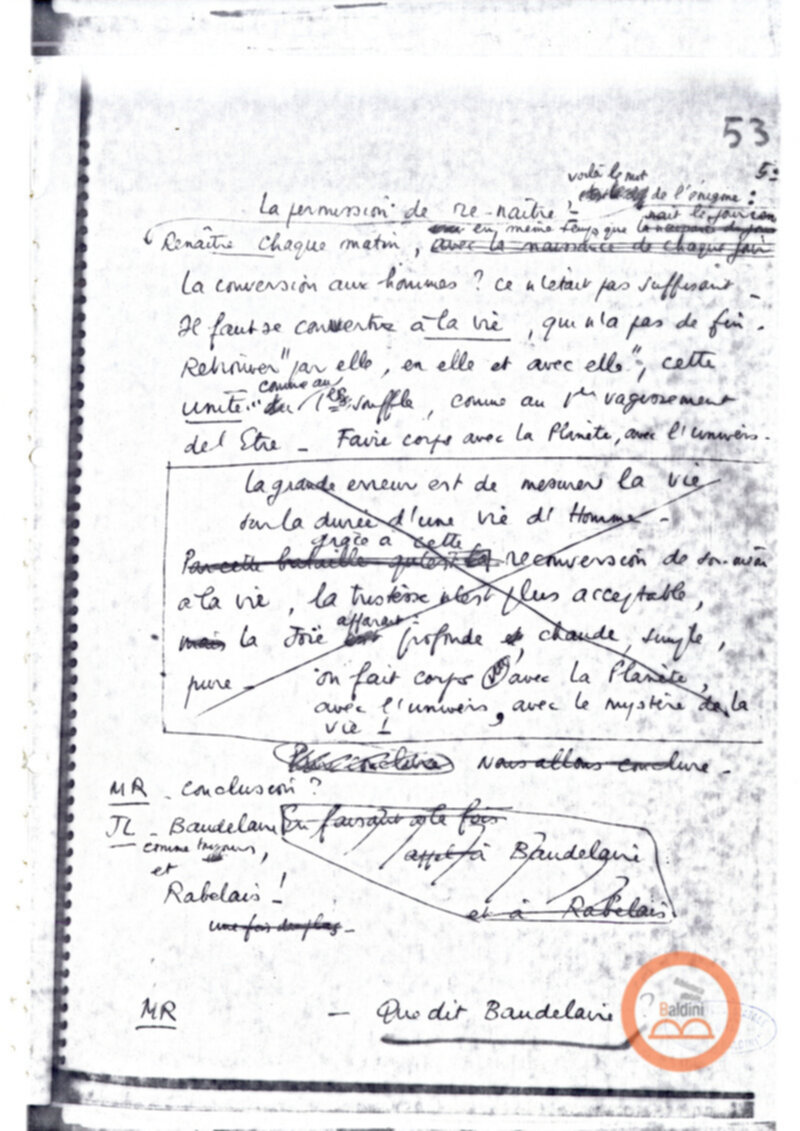 53
5.
voilà le mot
La permission de re-naître, de l'énigme :
naît le jour
Renaître chaque matin, en même temps que avec la naissance de chaque jour
La conversion aux hommes ? ce n'était pas suffisant _
Il faut se convertir à la vie, qui n'a pas de fin.
Retrouver "par elle, en elle et avec elle", cette
comme au
unité" du 1er souffle, comme au 1er vagissement
de l'Etre _ Faire corps avec la Planète, avec l'univers.
La grande erreur est de mesurer la vie
sur la durée d'une vie d'Homme _
grâce à cette
Par cette bataille qu'est la reconversion de soi-même
à la vie, la tristesse n'est plus acceptable,
apparaît
mais la Joie est profonde et, chaude, simple,
pure _ on fait corps avec la Planète,
avec l'univers, avec le mystère de la
vie !
Pour conclure Nous allons conclure _
MR _ Conclusion ?
JL _ Baudelaire En faisant à la fois
comme toujours,
appel à Baudelaire
et
Rabelais !
et à Rabelais
une fois de plus _
MR _ Que dit Baudelaire ?
Baldini